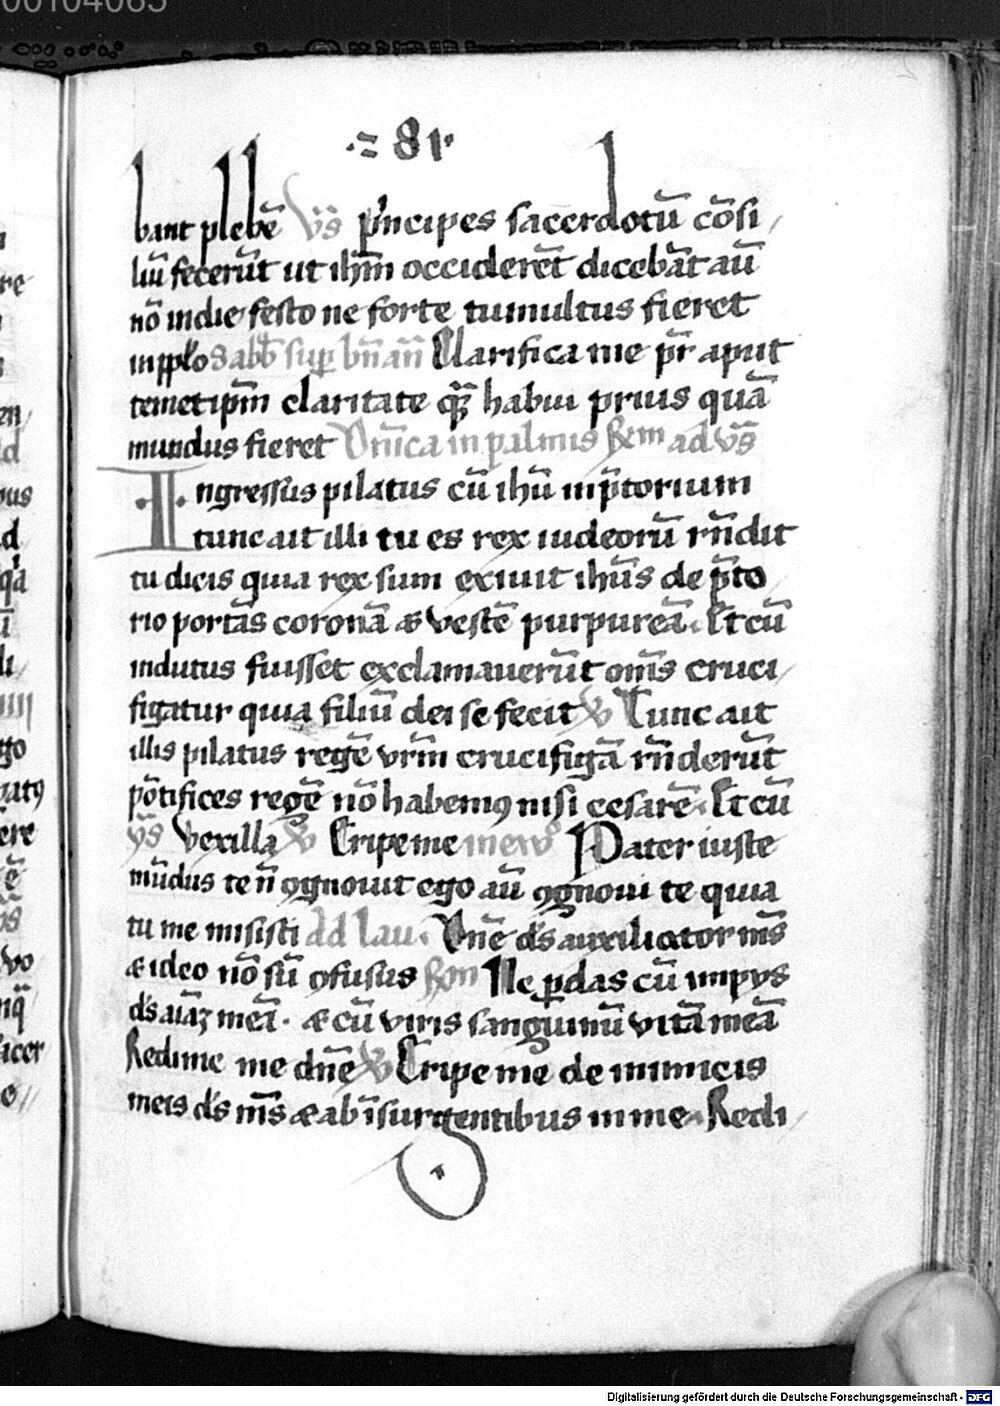 00104065
·281·
bant plebē Vs̄ p̄ncipes sacerdotū cōsi
liū fecerūt ut ihm̄ occiderēt dicebāt aū
nō in die festo ne forte tumultus fieret
in pplo Sabb̄ sup bn̄ an̄ Clarifica me pr̄ aput
temetipm̄ claritate q̄ȝ habui prius quā
mundus fieret Dnīca in palmis Rm ad vs̄
Ingressus pilatus cū ihū in p̄torium
tunc ait illi tu es rex iudeorū rn̄dit
tu dicis quia rex sum exiuit ihūs de p̄to
rio portās coronā & vestē purpureā. Et cū
indutus fuisset exclamauerūt om̄s cruci
figatur quia filiū dei se fecit V Tunc ait
illis pilatus regē vrm̄ crucifigā rn̄derūt
pōtifices regē nō habemꝰ nisi cesarē. Et cū
vs̄ Vexilla V Eripe me in ew̄ Pater iuste
mūdus te n̄ ꝯgnouit ego aū ꝯgnoui te quia
tu me misisti ad lau. Dn̄e ds̄ auxiliator ms̄
& ideo nō sū ꝯfusus Rm Ne ꝑdas cū impys
ds̄ aīaȝ meā. & cū viris sanguinū vitā meā
Redime me dn̄e V Eripe me de inimicis
meis ds̄ ms̄ & ab īsurgentibus in me. Redi
Digitalisierung gefördert durch die Deutsche Forschungsgemeinschaft - DFG